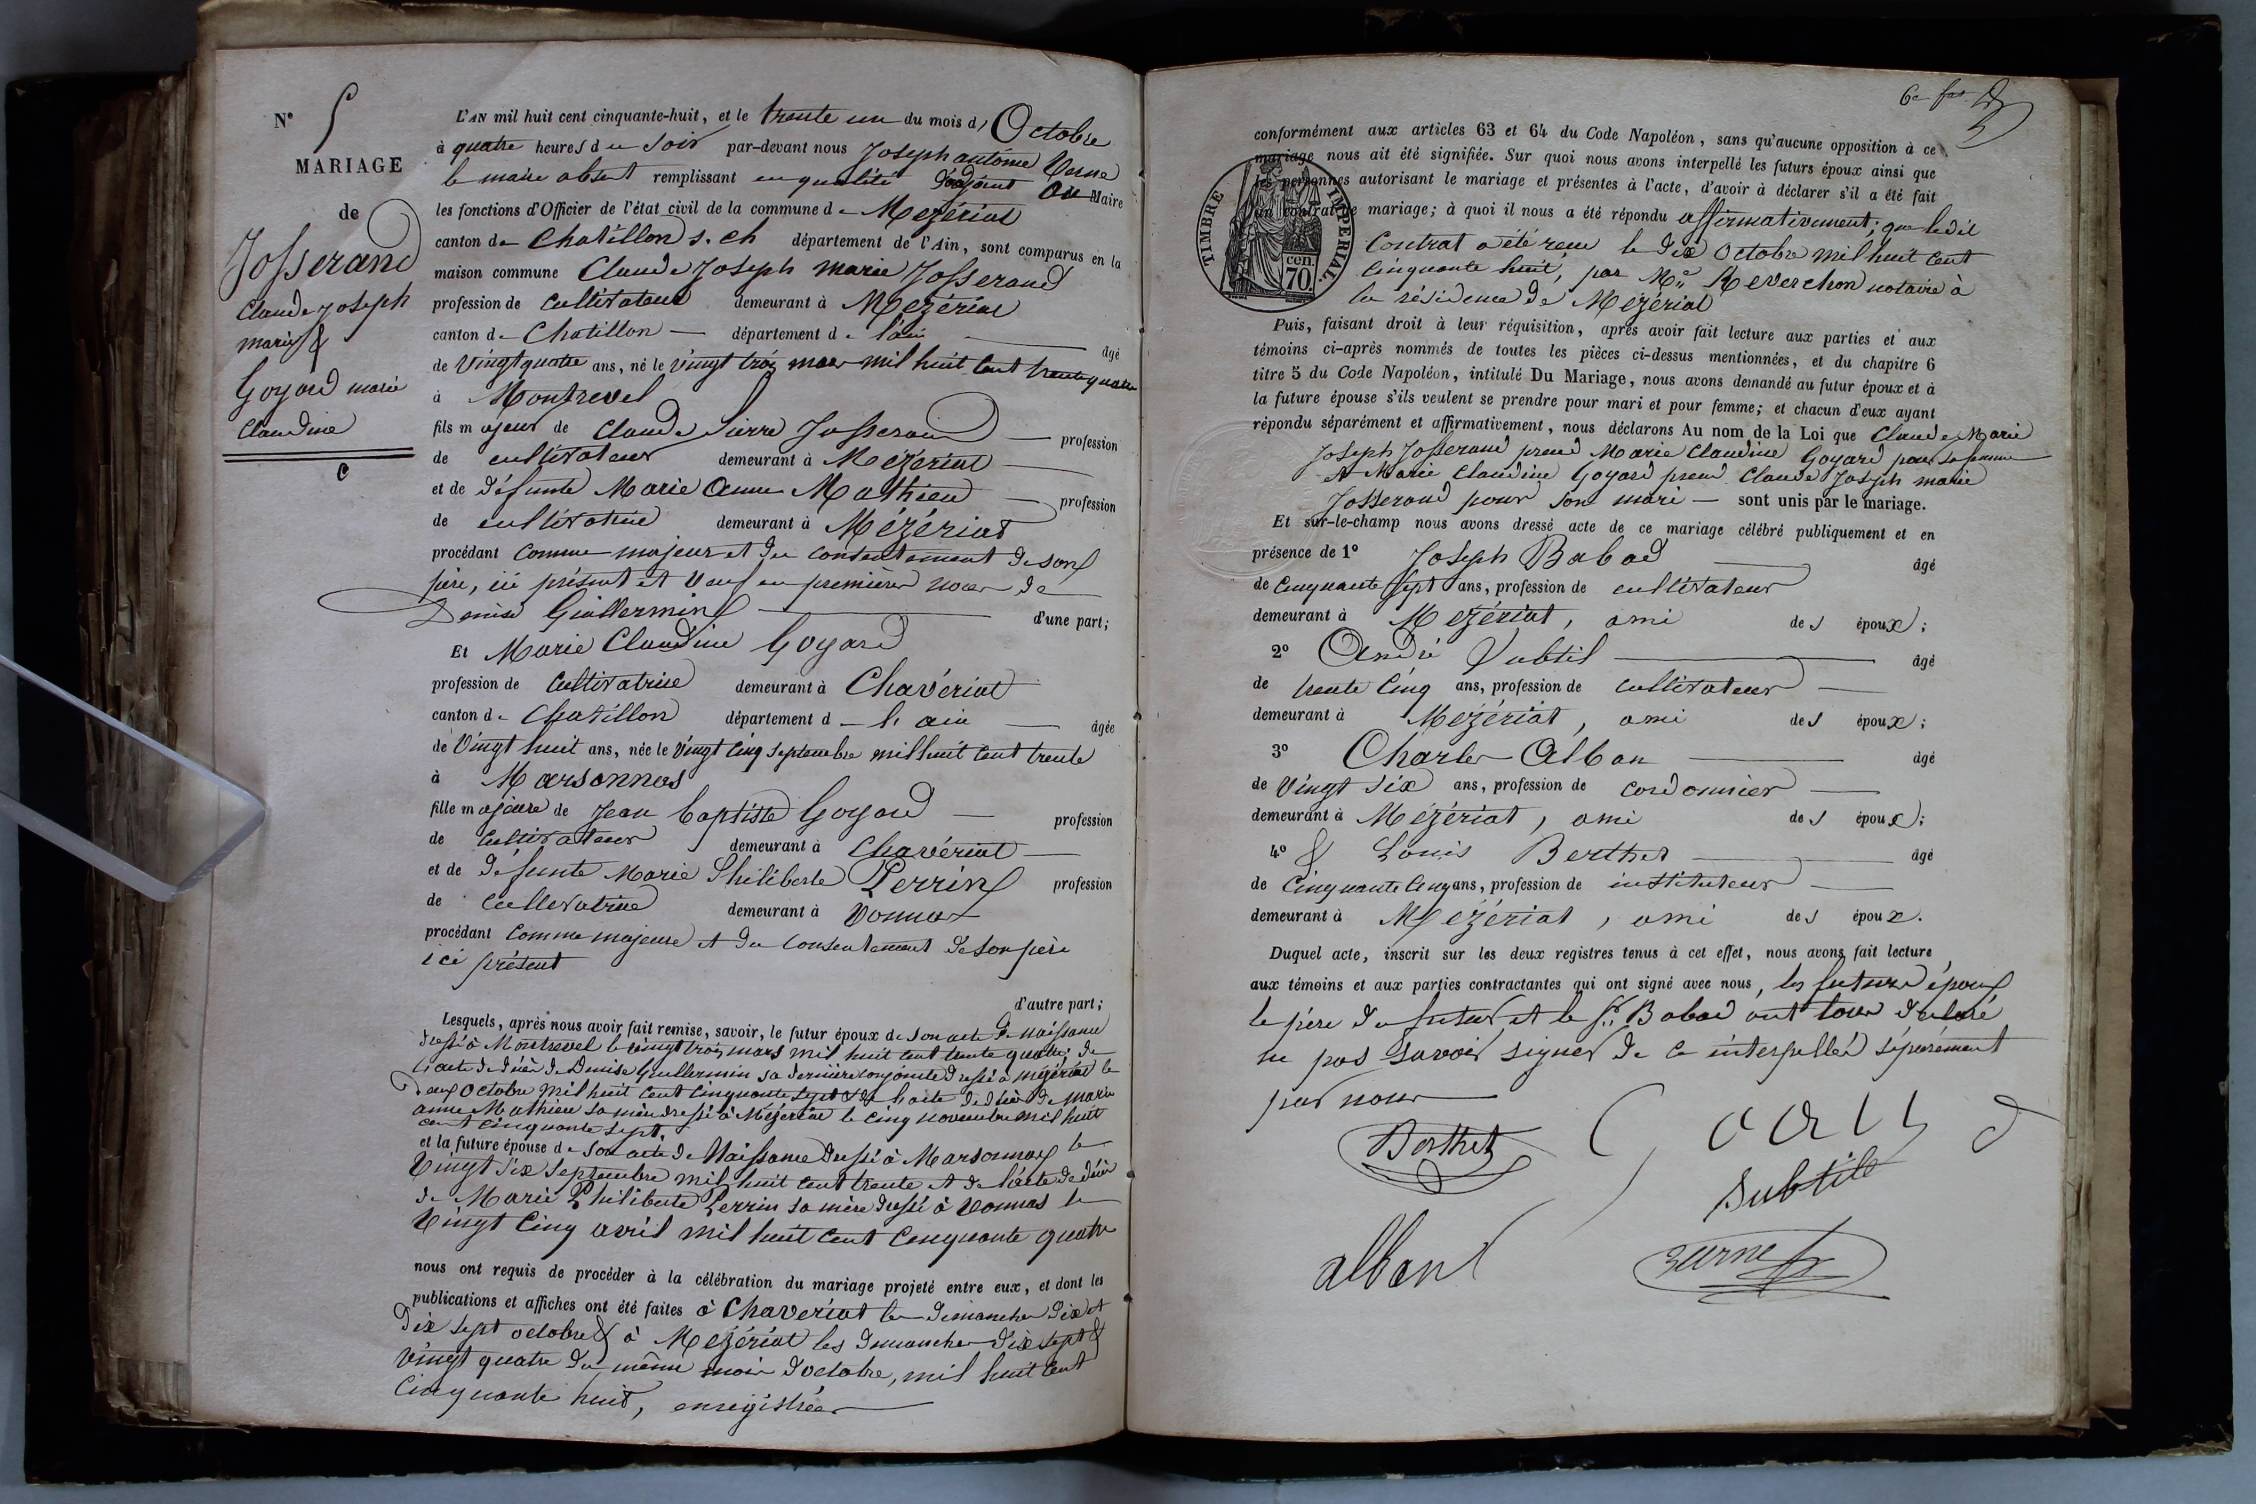 N° 5
MARIAGE
de
Josserand
Claude Joseph
marie &
Goyard marie
Claudine
L'AN mil huit cent cinquante-huit, et le trente un du mois d'Octobre
à quatre heures du soir par-devant nous Joseph antoine Verne
le maire absent remplissant en qualité d'adjoint au Maire
les fonctions d'Officier de l'état civil de la commune de Mezériat
canton de Chatillon s. ch département de l'Ain, sont comparus en la
maison commune Claude Joseph marie Josserand
profession de cultivateur demeurant à Mezériat
canton de Chatillon département de l'ain âgé
de vingt quatre ans, né le vingt trois mars mil huit cent trente quatre
à Montrevel
fils majeur de Claude Pierre Josserand profession
de cultivateur demeurant à Mézériat
et de défunte Marie Anne Mathieu profession
de cultivatrice demeurant à Mézériat
procédant comme majeur et du consentement de son
père, ici présent et veuf en premières noces de
Denise Guillermin d'une part;
Et Marie Claudine Goyard
profession de cultivatrice demeurant à Chavériat
canton de Chatillon département de l'ain âgée
de vingt huit ans, née le vingt cinq septembre mil huit cent trente
à Marsonnas
fille majeure de Jean baptiste Goyard profession
de cultivateur demeurant à Chavériat
et de défunte Marie Philiberte Perrin profession
de cultivatrice demeurant à Vonnas
procédant comme majeure et du consentement de son père
ici présent
d'autre part;
Lesquels, après nous avoir fait remise, savoir, le futur époux de son acte de naissance
dressé à Montrevel le vingt trois mars mil huit cent trente quatre; de
l'acte de décès de Denise Guillermin sa dernière conjointe dressé à mézériat le
deux Octobre mil huit cent cinquante sept & de l'acte de décès de Marie
anne Mathieu sa mère dressé à Mézériat le cinq novembre mil huit
cent cinquante sept.
et la future épouse de son acte de Naissance dressé à Marsonnas le
vingt six septembre mil huit cent trente et de l'acte de décès
de Marie Philiberte Perrin sa mère dressé à Vonnas le
vingt cinq avril mil huit cent cinquante quatre
nous ont requis de procéder à la célébration du mariage projeté entre eux, et dont les
publications et affiches ont été faites à Chaveriat les dimanches dix et
dix sept octobre & à Mezériat les dimanches dix sept &
vingt quatre du même mois d'octobre, mil huit cent
cinquante huit, enregistrées
6e
conformément aux articles 63 et 64 du Code Napoléon, sans qu'aucune opposition à ce
mariage nous ait été signifiée. Sur quoi nous avons interpellé les futurs époux ainsi que
les personnes autorisant le mariage et présentes à l'acte, d'avoir à déclarer s'il a été fait
un contrat de mariage; à quoi il nous a été répondu affirmativement; que ledit
Contrat a été reçu le dix Octobre mil huit cent
cinquante huit, par Me Reverchon notaire à
la résidence de Mézériat
TIMBRE IMPERIAL
70 cen.
Puis, faisant droit à leur réquisition, après avoir fait lecture aux parties et aux
témoins ci-après nommés de toutes les pièces ci-dessus mentionnées, et du chapitre 6
titre 5 du Code Napoléon, intitulé Du Mariage, nous avons demandé au futur époux et à
la future épouse s'ils veulent se prendre pour mari et pour femme; et chacun d'eux ayant
répondu séparément et affirmativement, nous déclarons Au nom de la Loi que Claude Marie
Joseph Josserand prend Marie Claudine Goyard pour sa femme
et Marie Claudine Goyard prend Claude Joseph marie
Josserand pour son mari sont unis par le mariage.
Et sur-le-champ nous avons dressé acte de ce mariage célébré publiquement et en
présence de 1° Joseph Babad âgé
de cinquante sept ans, profession de cultivateur
demeurant à Mezériat, ami des époux;
2° André Subtil âgé
de trente cinq ans, profession de cultivateur
demeurant à Mezériat, ami des époux;
3° Charles Alban âgé
de vingt six ans, profession de cordonnier
demeurant à Mézériat, ami des époux;
4° & Louis Berthet âgé
de cinquante cinq ans, profession de instituteur
demeurant à Mezériat, ami des époux.
Duquel acte, inscrit sur les deux registres tenus à cet effet, nous avons fait lecture
aux témoins et aux parties contractantes qui ont signé avec nous, les futurs époux
le père du futur et le Sr Babad ont tous déclaré
ne pas savoir signer de ce interpellés séparément
par nous
Berthet Goyard
Subtil
alban Verne